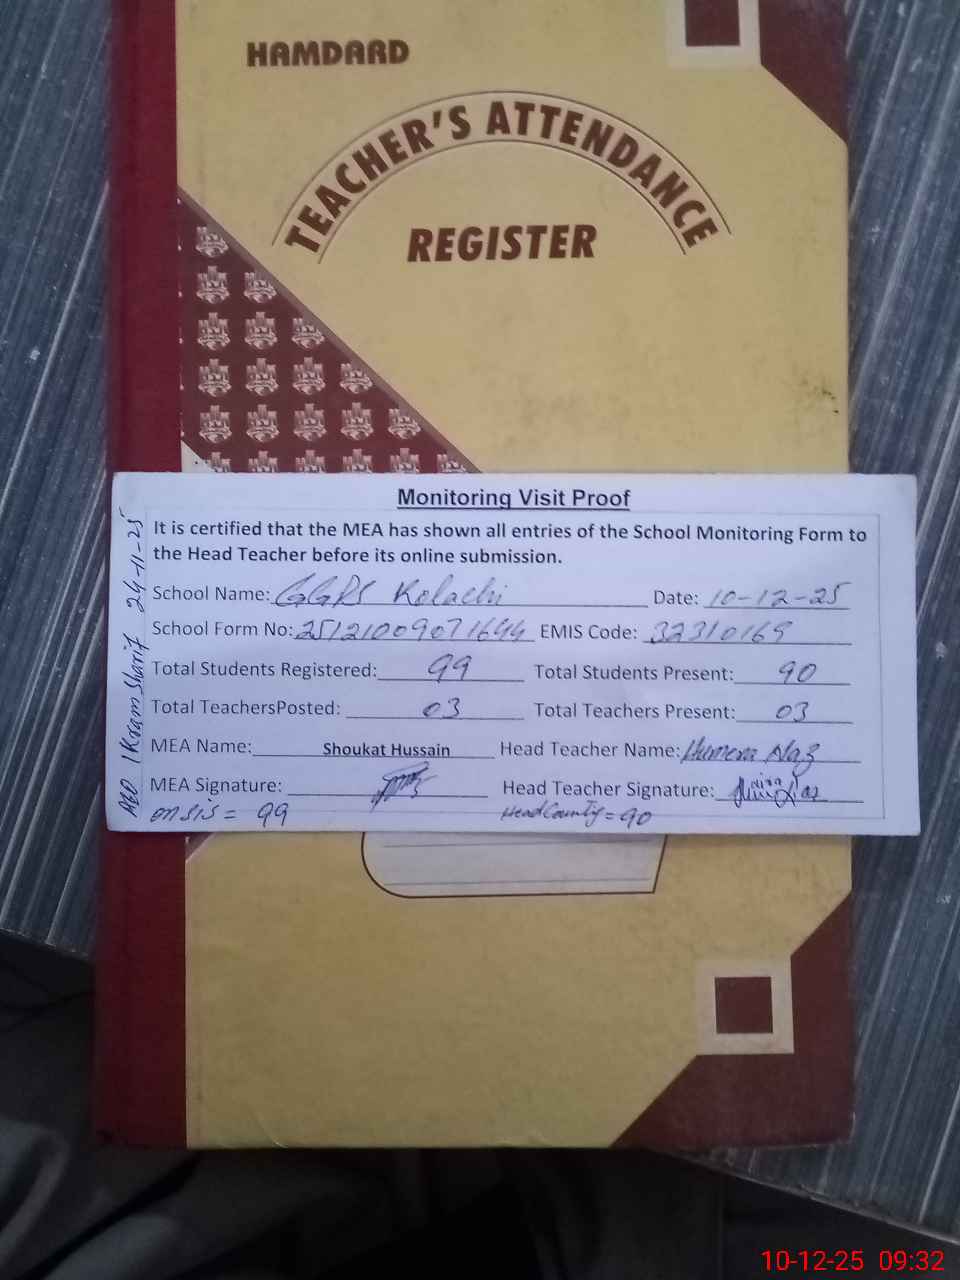 HAMDARD
TEACHER'S ATTENDANCE
REGISTER
Monitoring Visit Proof
It is certified that the MEA has shown all entries of the School Monitoring Form to
the Head Teacher before its online submission.
School Name: GGPS Kolachi Date: 10-12-25
School Form No: 25121009071644 EMIS Code: 32310169
Total Students Registered: 99 Total Students Present: 90
Total TeachersPosted: 03 Total Teachers Present: 03
MEA Name: Shoukat Hussain Head Teacher Name: Humera Naz
MEA Signature: Head Teacher Signature:
on sis = 99 Head County = 90
AEO Ikram Sharif 24-11-25
10-12-25 09:32